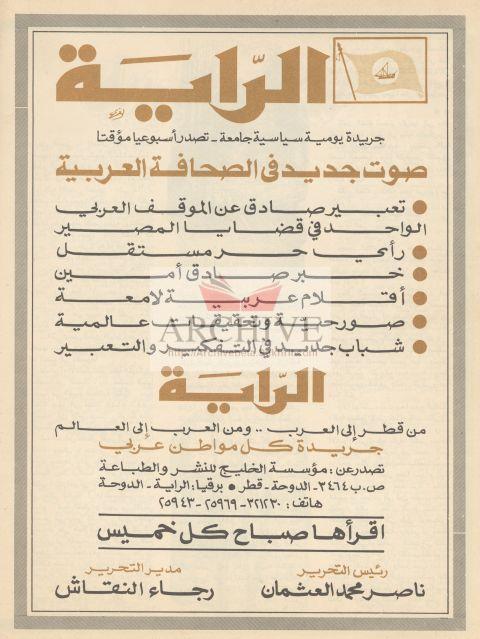 الرّاية
جريدة يومية سياسية جامعة - تصدر أسبوعيا مؤقتا
صوت جديد فى الصحافة العربية
● تعبير صادق عن الموقف العربي
الواحد في قضايا المصير
● رأي حر مستقل
● خبر صادق أمين
● أقلام عربية لامعة
● صور حية وتحقيقات عالمية
● شباب جديد في التفكير والتعبير
ARCHIVE
الرّاية
من قطر إلى العرب .. ومن العرب إلى العالم
جريدة كل مواطن عربي
تصدر عن: مؤسسة الخليج للنشر والطباعة
ص.ب ٣٤٦٤ - الدوحة - قطر ● برقيا: الراية - الدوحة
هاتف: ٣٢١٢٣٠ - ٢٥٩٦٩ - ٢٥٩٤٣
اقرأها صباح كل خميس
رئيس التحرير
ناصر محمد العثمان
مدير التحرير
رجاء النقاش